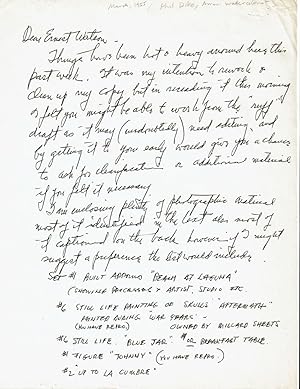 Dear Ernest Watson -
Things have been hot & heavy around here this
past week. It was my intention to rework &
clean up my copy but in rereading it this morning
I felt you might be able to work from the "ruff"
draft as it may (undoubtedly) need editing and
by getting it to you early would give you a chance
to ask for clarification or additional material
if you felt it necessary
I am enclosing plenty of photographic material
most of it identified in the text also most of
it captioned on the back however if I might
suggest a preference the list would include:
Set #1 Built around "Beach at Laguna"
(showing processes & artist, studio etc.
#6 Still life painting of skulls "Aftermath"
painted during war years -
(you have repro) owned by Millard Sheets
#6 Still life. "Blue Jar" or Breakfast table.
#1 Figure "Johnny" (you have repro.)
#2 "Up to La Cumbre"